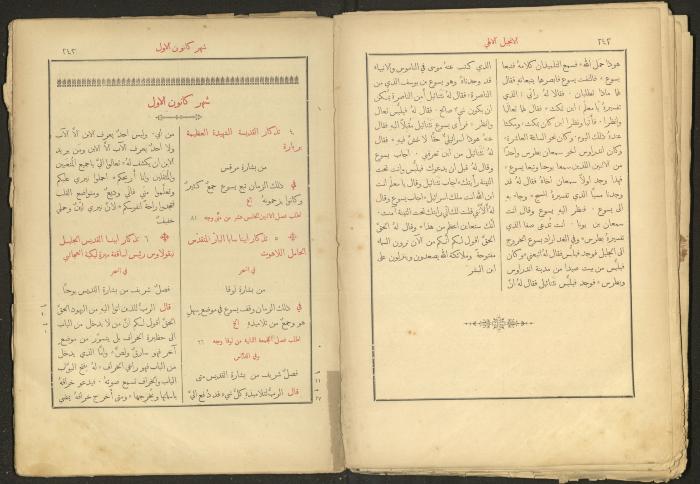 ٢٤٢
الانجيل الالهي
هوذا حمل الله فسمع التلميذان كلامهُ فتبعا
يسوع فالتفت يسوع فابصرها يتبعانهِ فقال
لهما ماذا تطلبان فقالا لهُ رابّي الذي
تفسيرهُ يا معلم اين تمكث فقال لهما تعاليا
وانظرا فأتيا ونظرا اين كان يمكث ومكثا
عندهُ ذلك اليوم وكان نحو الساعة العاشرة
وكان اندراوس اخو سمعان بطرس واحدًا
من الاثنين اللذين سمعا يوحنا وتبعا يسوع
فهذا وجد اولًا سمعان اخاهُ فقال لهُ قد
وجدنا مسيّا الذي تفسيرهُ المسيح وجاء بهِ
الى يسوع فنظر اليهِ يسوع وقال انت
سمعان بن يونا انت تدعى صفا الذي
تفسيرهُ بطرس وفي الغد اراد يسوع الخروج
الى الجليل فوجد فيلبّس فقال لهُ اتبعني وكان
فيلبّس من بيت صيدا من مدينة اندراوس
وبطرس فوجد فيلبّس نثنائيل فقال لهُ انّ
الذي كتب عنهُ موسى في الناموس والانبياء
قد وجدناهُ وهو يسوع بن يوسف الذي من
الناصرة فقال لهُ نثنائيل أمن الناصرة يمكن
ان يكون شيءٌ صالح فقال لهُ فيلبّس تعال
وانظر فرأى يسوع نثنائيل مقبلًا اليهِ فقال
عنهُ هوذا اسرائيليٌّ حقًّا لا غش فيهِ فقال
لهُ نثنائيل من اين تعرفني اجاب يسوع
وقال لهُ قبل ان يدعوك فيلبّس وانت تحت
التينة رأيتك اجاب نثنائيل وقال يا معلم انت
ابن الله انت ملك اسرائيل اجاب يسوع وقال
لهُ ألأنّي قلت لك اني رأيتك تحت التينة آمنت
انك ستعاين اعظم من هذا وقال لهُ الحقّ
الحقّ اقول لكم انكم من الآن ترون السماء
مفتوحة وملائكة الله يصعدون وينزلون على
ابن البشر
شهر كانون الاول
٢٤٣
شهر كانون الاول
٤ تذكار القديسة الشهيدة العظيمة
بربارة
من بشارة مرقس
في ذلك الزمان تبع يسوع جمعٌ كثيرٌ
وكانوا يزحمونهُ الخ
٥ تذكار ابينا سابا البار المتقدّس
الحامل اللاهوت
في السحر
من بشارة لوقا
في ذلك الزمان وقف يسوع في موضع سهل
هو وجمعٌ من تلاميذهِ الخ
وفي القدّاس
فصلٌ شريف من بشارة القديس متى
قال الربّ لتلاميذهِ كلّ شيءٍ قد دُفع اليّ
من ابي وليس احدٌ يعرف الابن الّا الآب
ولا احدٌ يعرف الآب الّا الابن ومن يريد
الابن ان يكشف لهُ تعالوا اليّ يا جميع المتعبين
والمثقلين وانا أُريحكم احملوا نيري عليكم
وتعلّموا منّي فاني وديعٌ ومتواضع القلب
فتجدوا راحةً لنفوسكم لأنّ نيري ليّنٌ وحملي
خفيف
٦ تذكار ابينا القديس الجليل
نيقولاوس رئيس اساقفة ميرة ليكية العجائبي
في السحر
فصلٌ شريف من بشارة القديس يوحنا
قال الربّ للذين اتوا اليهِ من اليهود الحقّ
الحقّ اقول لكم انّ من لا يدخل من الباب
الى حظيرة الخراف بل يتسوّر من موضع
آخر فهو سارقٌ ولصٌّ وامّا الذي يدخل
من الباب فهو راعي الخراف لهُ يفتح البوّاب
والخراف تسمع صوتهُ فيدعو خرافهُ
باسمائها ويخرجها ومتى اخرج خرافهُ يمضي